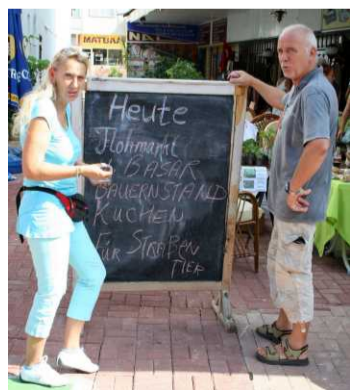 MATURA
Heute
Flohmarkt
BASAR
BAUERNSTAND
KUCHEN
FÜR STRAßEN
TIER